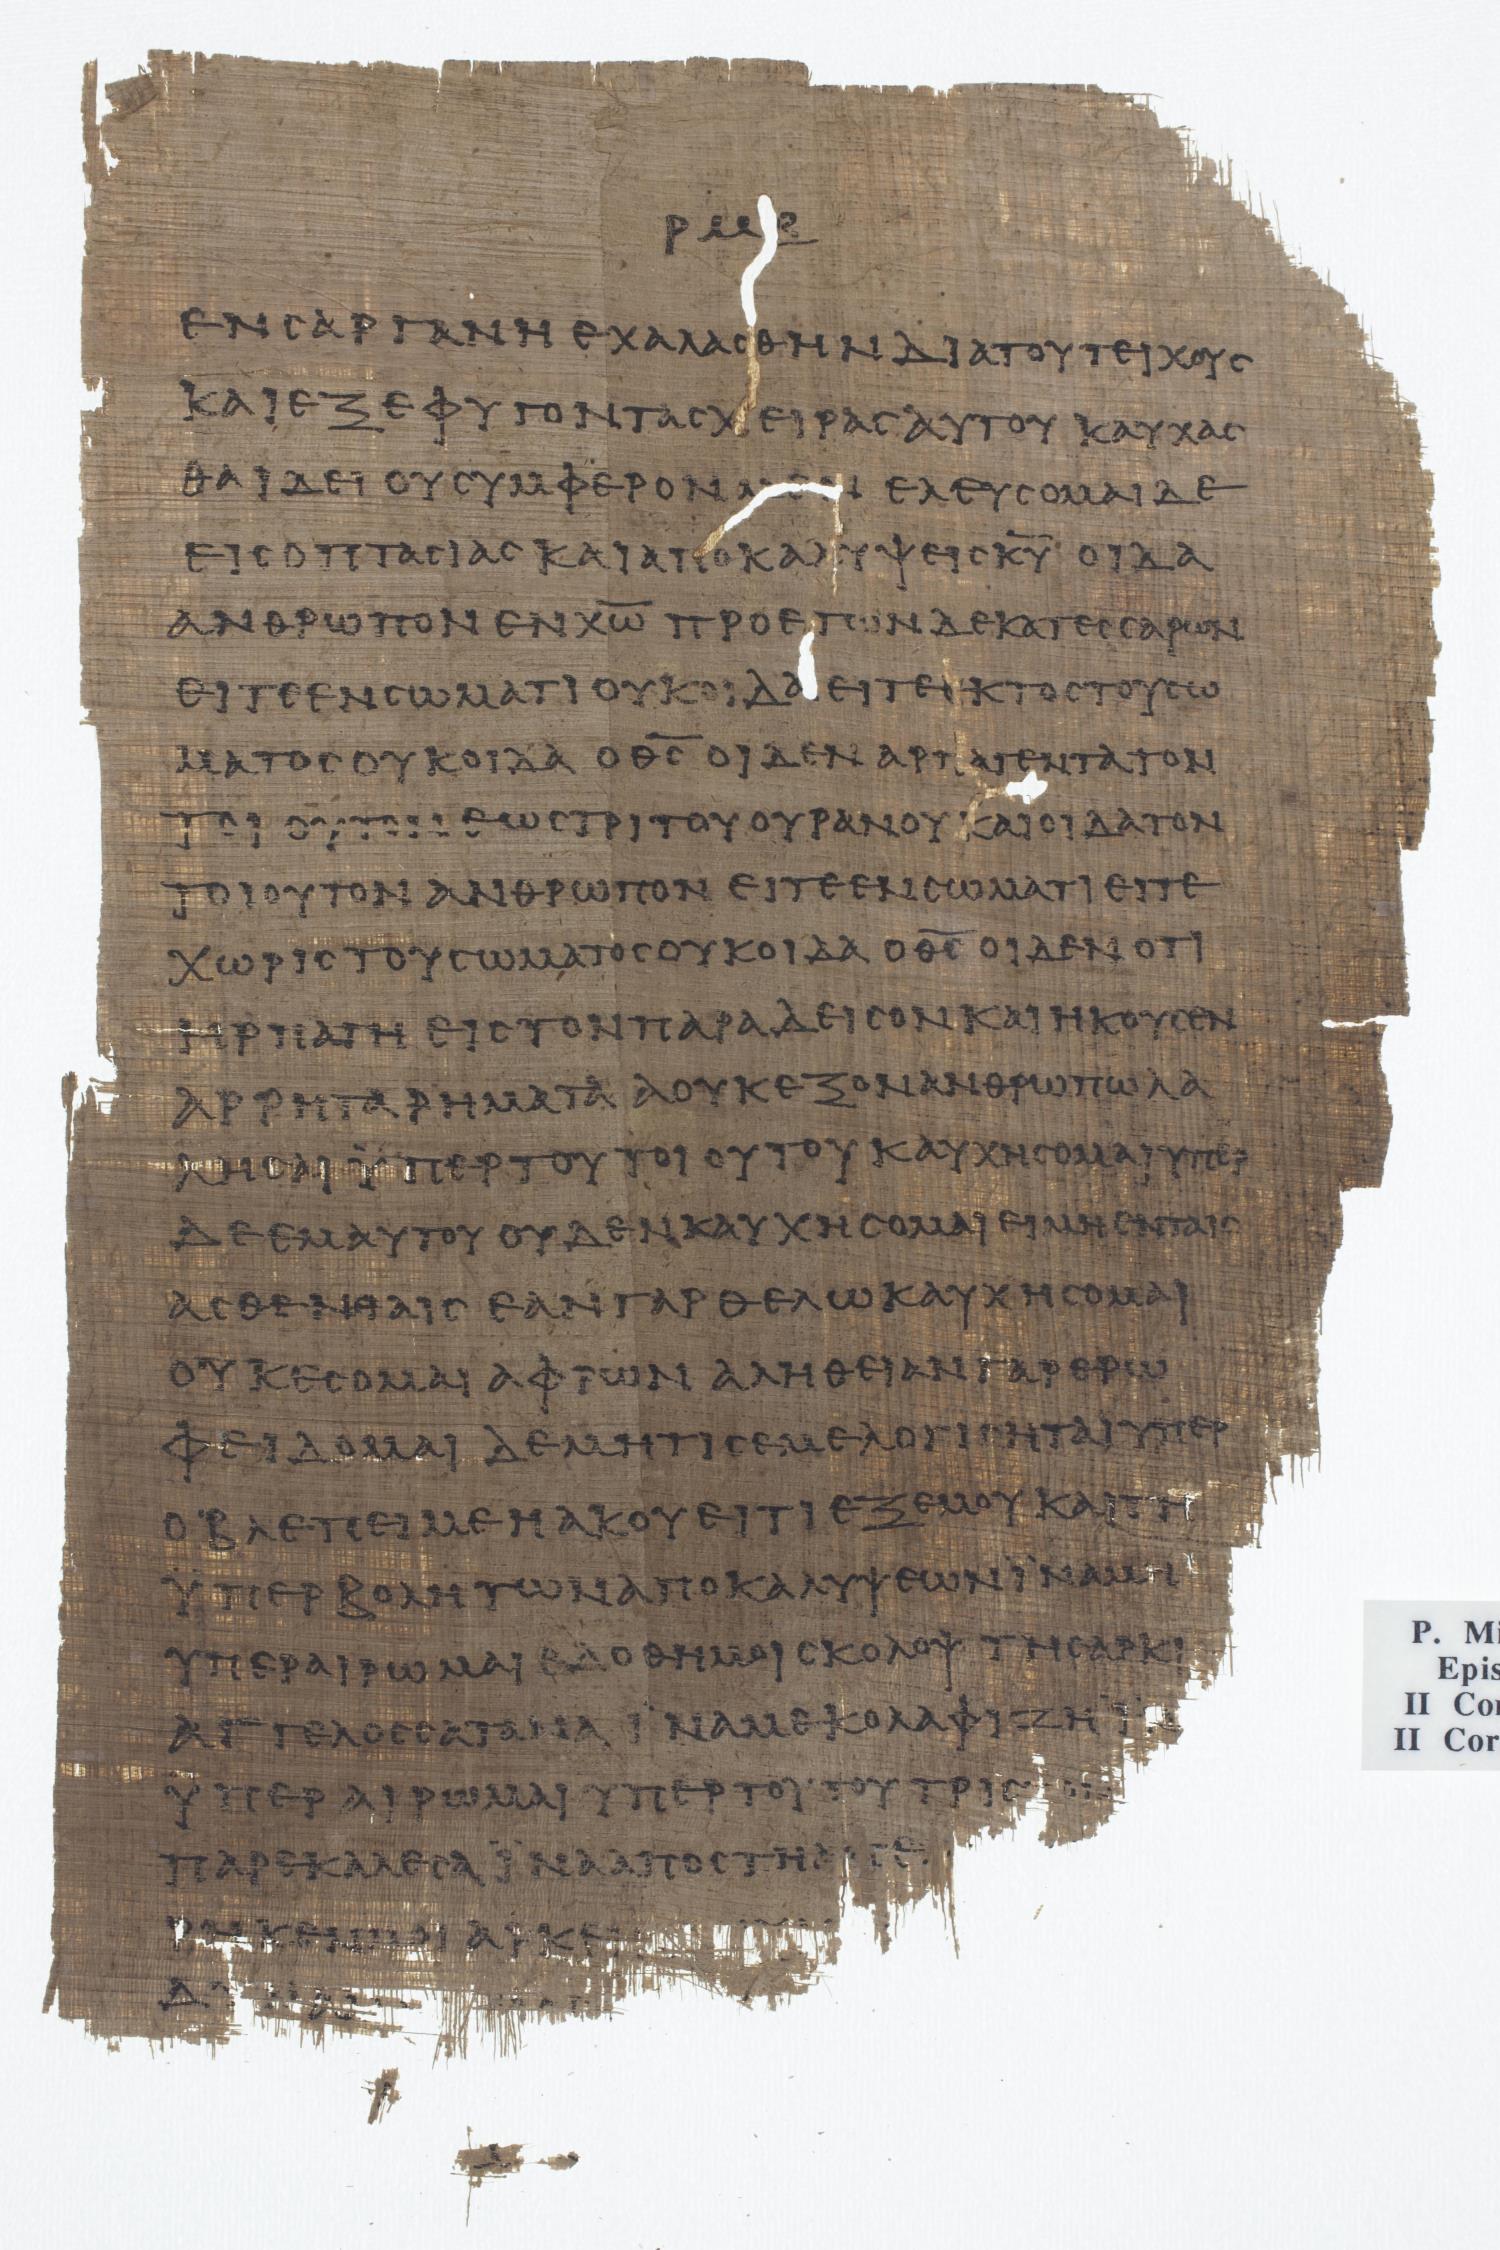 ρμϛ
ενσαργανηεχαλασθηνδιατουτειχους
καιεξεφυγοντασχειρασαυτου καυχασ
θαιδει ουσυμφερονμεν ελευσομαιδε
εισοπτασιασκαιαποκαλυψεισκ̅υ̅ οιδα
ανθρωπον ενχ̅ω̅ προετωνδεκατεσσαρων
ειτεενσωματι ουκοιδα ειτεεκτοστουσω
ματοσουκοιδα οθ̅ς̅ οιδεν αρπαγεντατον
τοιουτον εωστριτουουρανου καιοιδατον
τοιουτον ανθρωπον ειτεενσωματι ειτε
χωριστουσωματοσουκοιδα οθ̅ς̅ οιδενοτι
ηρπαγη εισ τονπαραδεισονκαιηκουσεν
αρρηταρηματα αουκεξονανθρωπωλα
λησαι ϋπερτουτοιουτου καυχησομαιυπερ
δεεμαυτουουδενκαυχησομαιειμηενταισ
ασθενειαισ εανγαρ θελωκαυχησομαι
ουκεσομαι αφρων αληθειανγαρερω
φειδομαι δεμητισεμελογισηταιυπερ
οβλεπειμεηακουειτιεξεμουκαιτη
ϋπερβολητωναποκαλυψεωνϊναμη
υπεραιρωμαιεδοθημοισκολοψ τησαρκι
αγγελοσσατανα ϊναμεκολαφιζηϊνα
ϋπεραιρωμαιυπερτουτουτρισ
παρεκαλεσα ϊνααποστη
ρηκενμοιαρκει